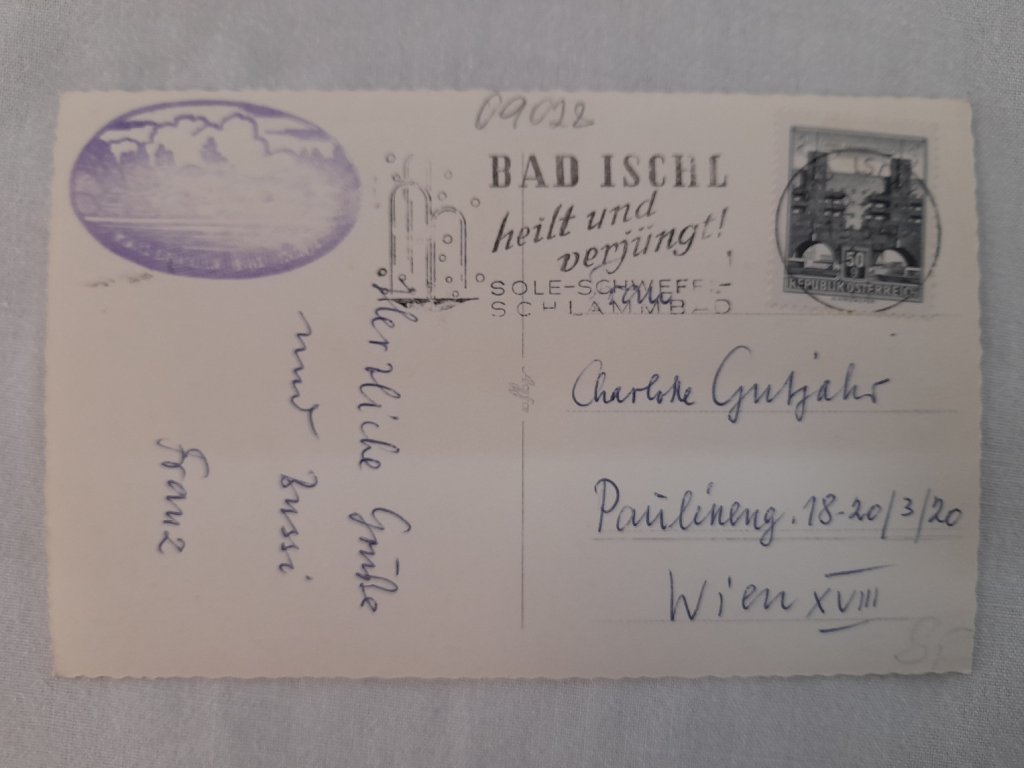 09022
BAD ISCHL
heilt und
verjüngt!
SOLE-SCHWEFEL-
SCHLAMMBAD
50
REPUBLIK ÖSTERREICH
Herzliche Grüße
und Bussi
Franz
Charlotte Gutjahr
Paulineng. 18-20/3/20
Wien XVIII